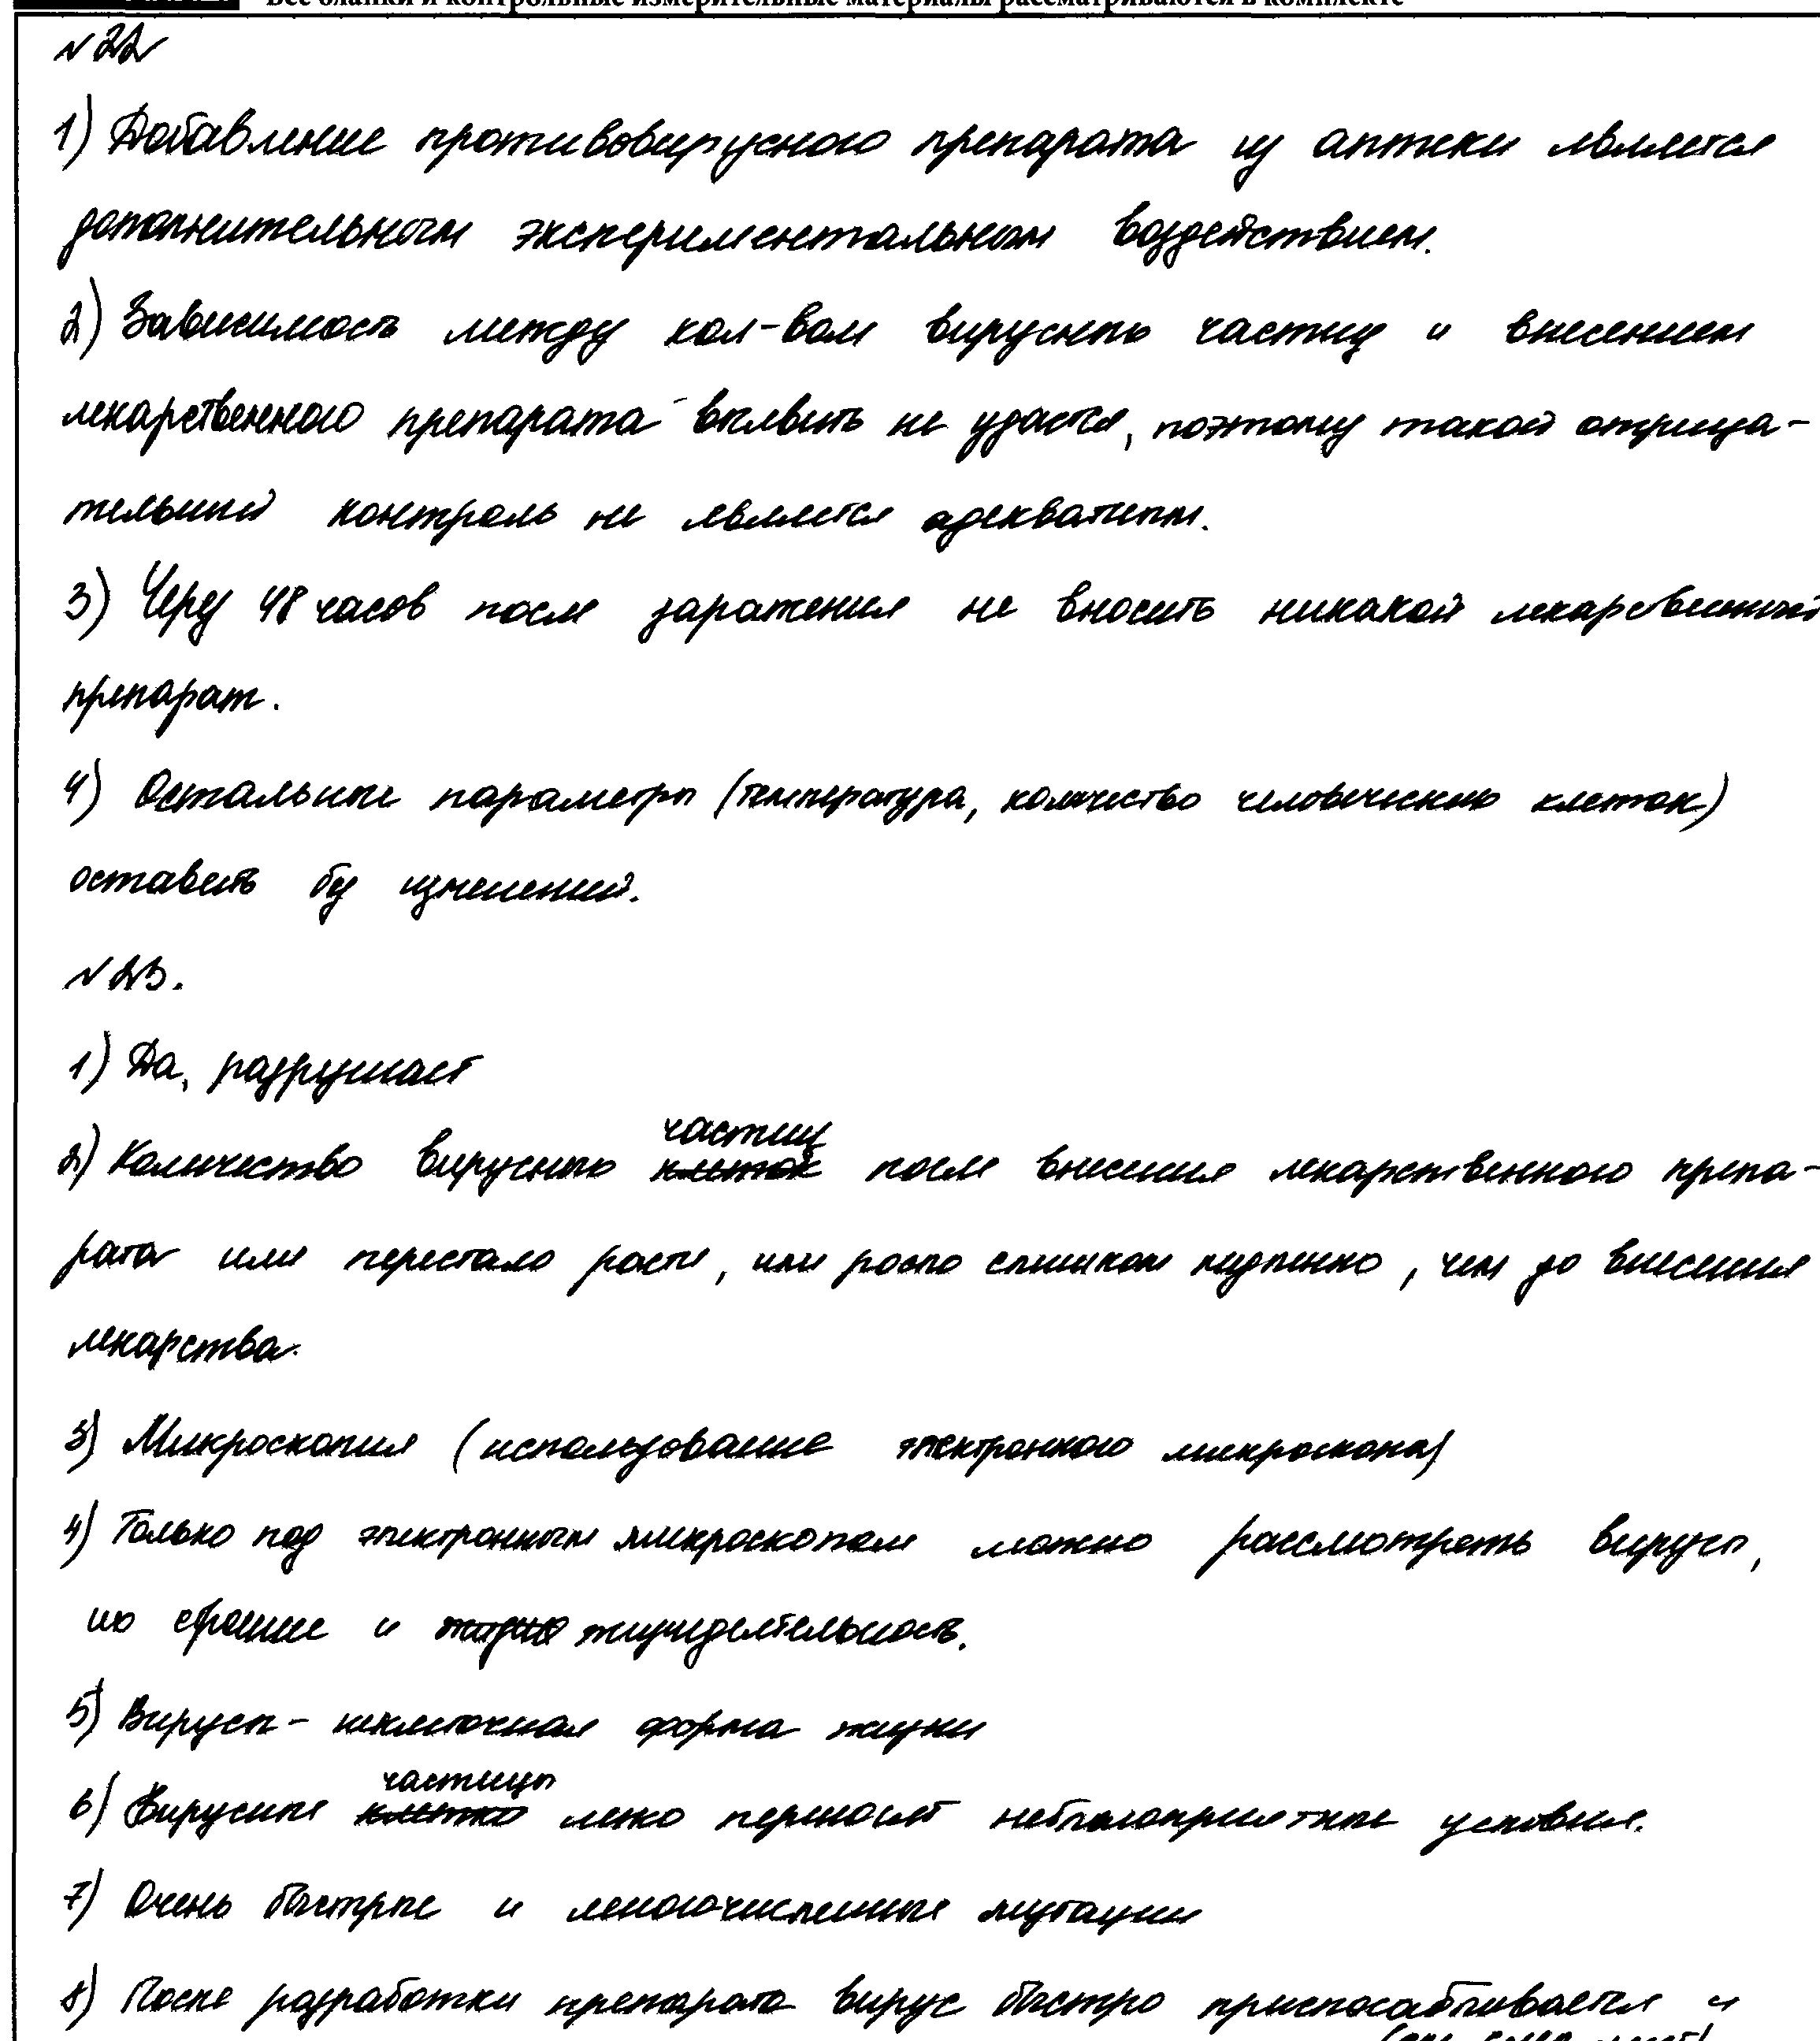 Все бланки и контрольные измерительные материалы рассматриваются в комплекте
№22
1) Добавление противовирусного препарата из аптеки является
дополнительным экспериментальным воздействием.
2) Зависимость между кол-вом вирусных частиц и внесением
лекарственного препарата выявить не удастся, поэтому такой отрица-
тельный контроль не является адекватным.
3) Через 48 часов после заражения не вносить никакой лекарственный
препарат.
4) Остальные параметры (температура, количество человеческих клеток)
оставить без изменений.
№23.
1) Да, разрушает
частиц
2) Количество вирусных клеток после внесения лекарственного препа-
рата или перестало расти, или росло слишком медленно, чем до внесения
лекарства.
3) Микроскопия (использование электронного микроскопа)
4) Только под электронным микроскопом можно рассмотреть вирусы,
их строение и жизнедеятельность.
5) Вирусы - неклеточная форма жизни
частицы
6) Вирусные клетки легко переносят неблагоприятные условия.
7) Очень быстрые и многочисленные мутации
8) После разработки препарата вирус быстро приспосабливается и